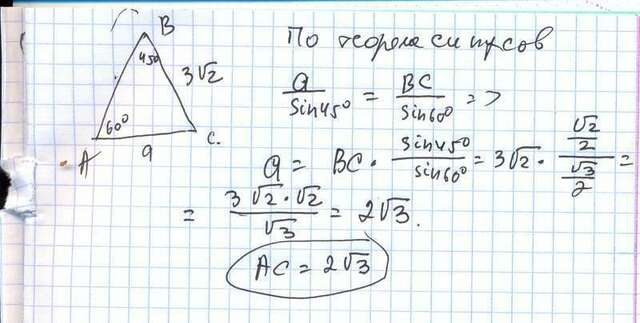 B
45°
3√2
60°
A
a
C.
По теорема синусов
a/sin45° = BC/sin60° =>
a = BC · sin45°/sin60° = 3√2 · (√2/2)/(√3/2) =
= 3√2·√2/√3 = 2√3.
AC = 2√3